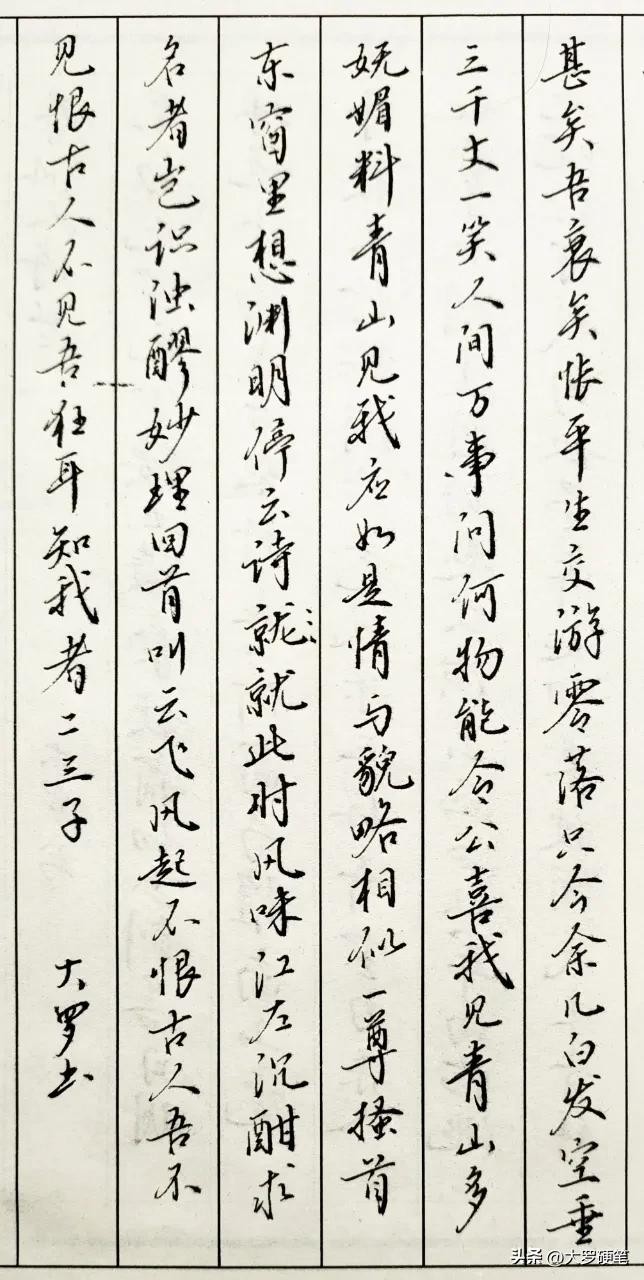 甚矣吾衰矣怅平生交游零落只今余几白发空垂
三千丈一笑人间万事问何物能令公喜我见青山多
妩媚料青山见我应如是情与貌略相似一尊搔首
东窗里想渊明停云诗就就此时风味江左沉酣求
名者岂识浊醪妙理回首叫云飞风起不恨古人吾不
见恨古人不见吾狂耳知我者二三子 大罗书
头条 @大罗硬笔